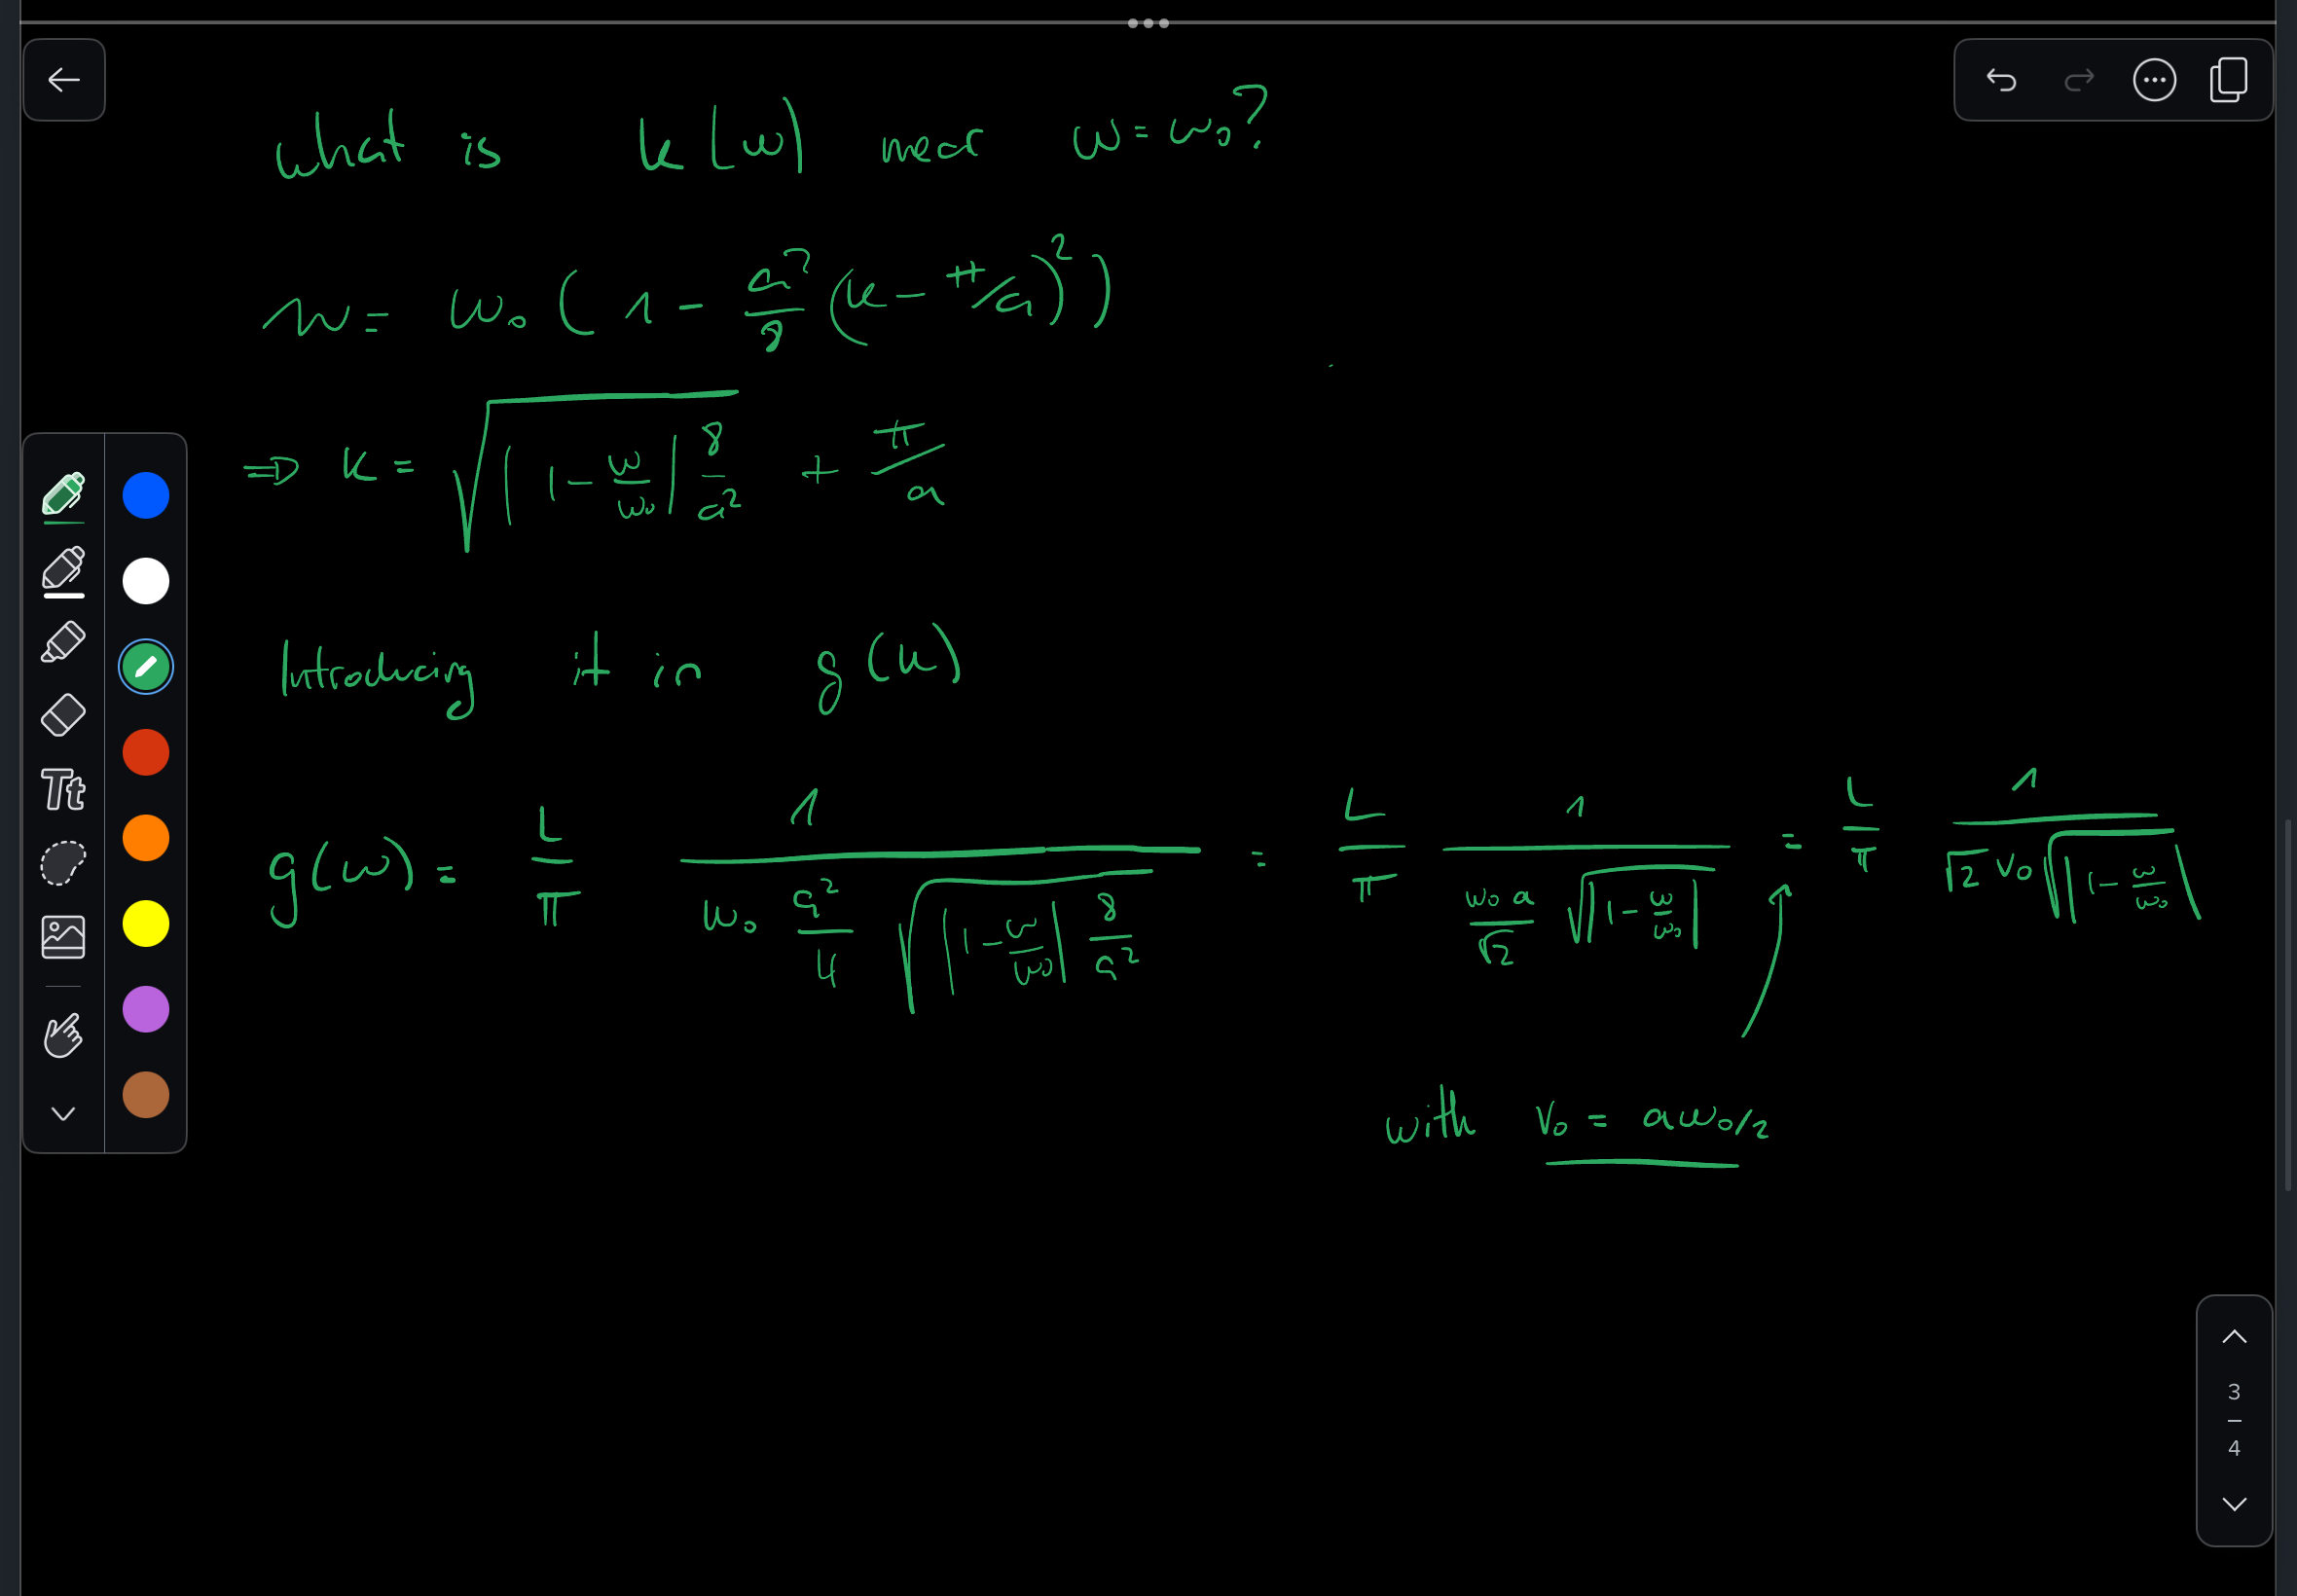 what is k(ω) near ω=ω₀?
ω = ω₀ ( 1 - a²/8 (k - π/a)² )
⇒ k = √( |1 - ω/ω₀| 8/a² ) + π/a
Introducing it in g(k)
g(ω) = L/π 1/( ω₀ a²/4 √( |1 - ω/ω₀| 8/a² ) ) = L/π 1/( ω₀ a/√2 √|1 - ω/ω₀| ) = L/π 1/( √2 v₀ √|1 - ω/ω₀| )
with v₀ = aω₀/2
Tt
3
4